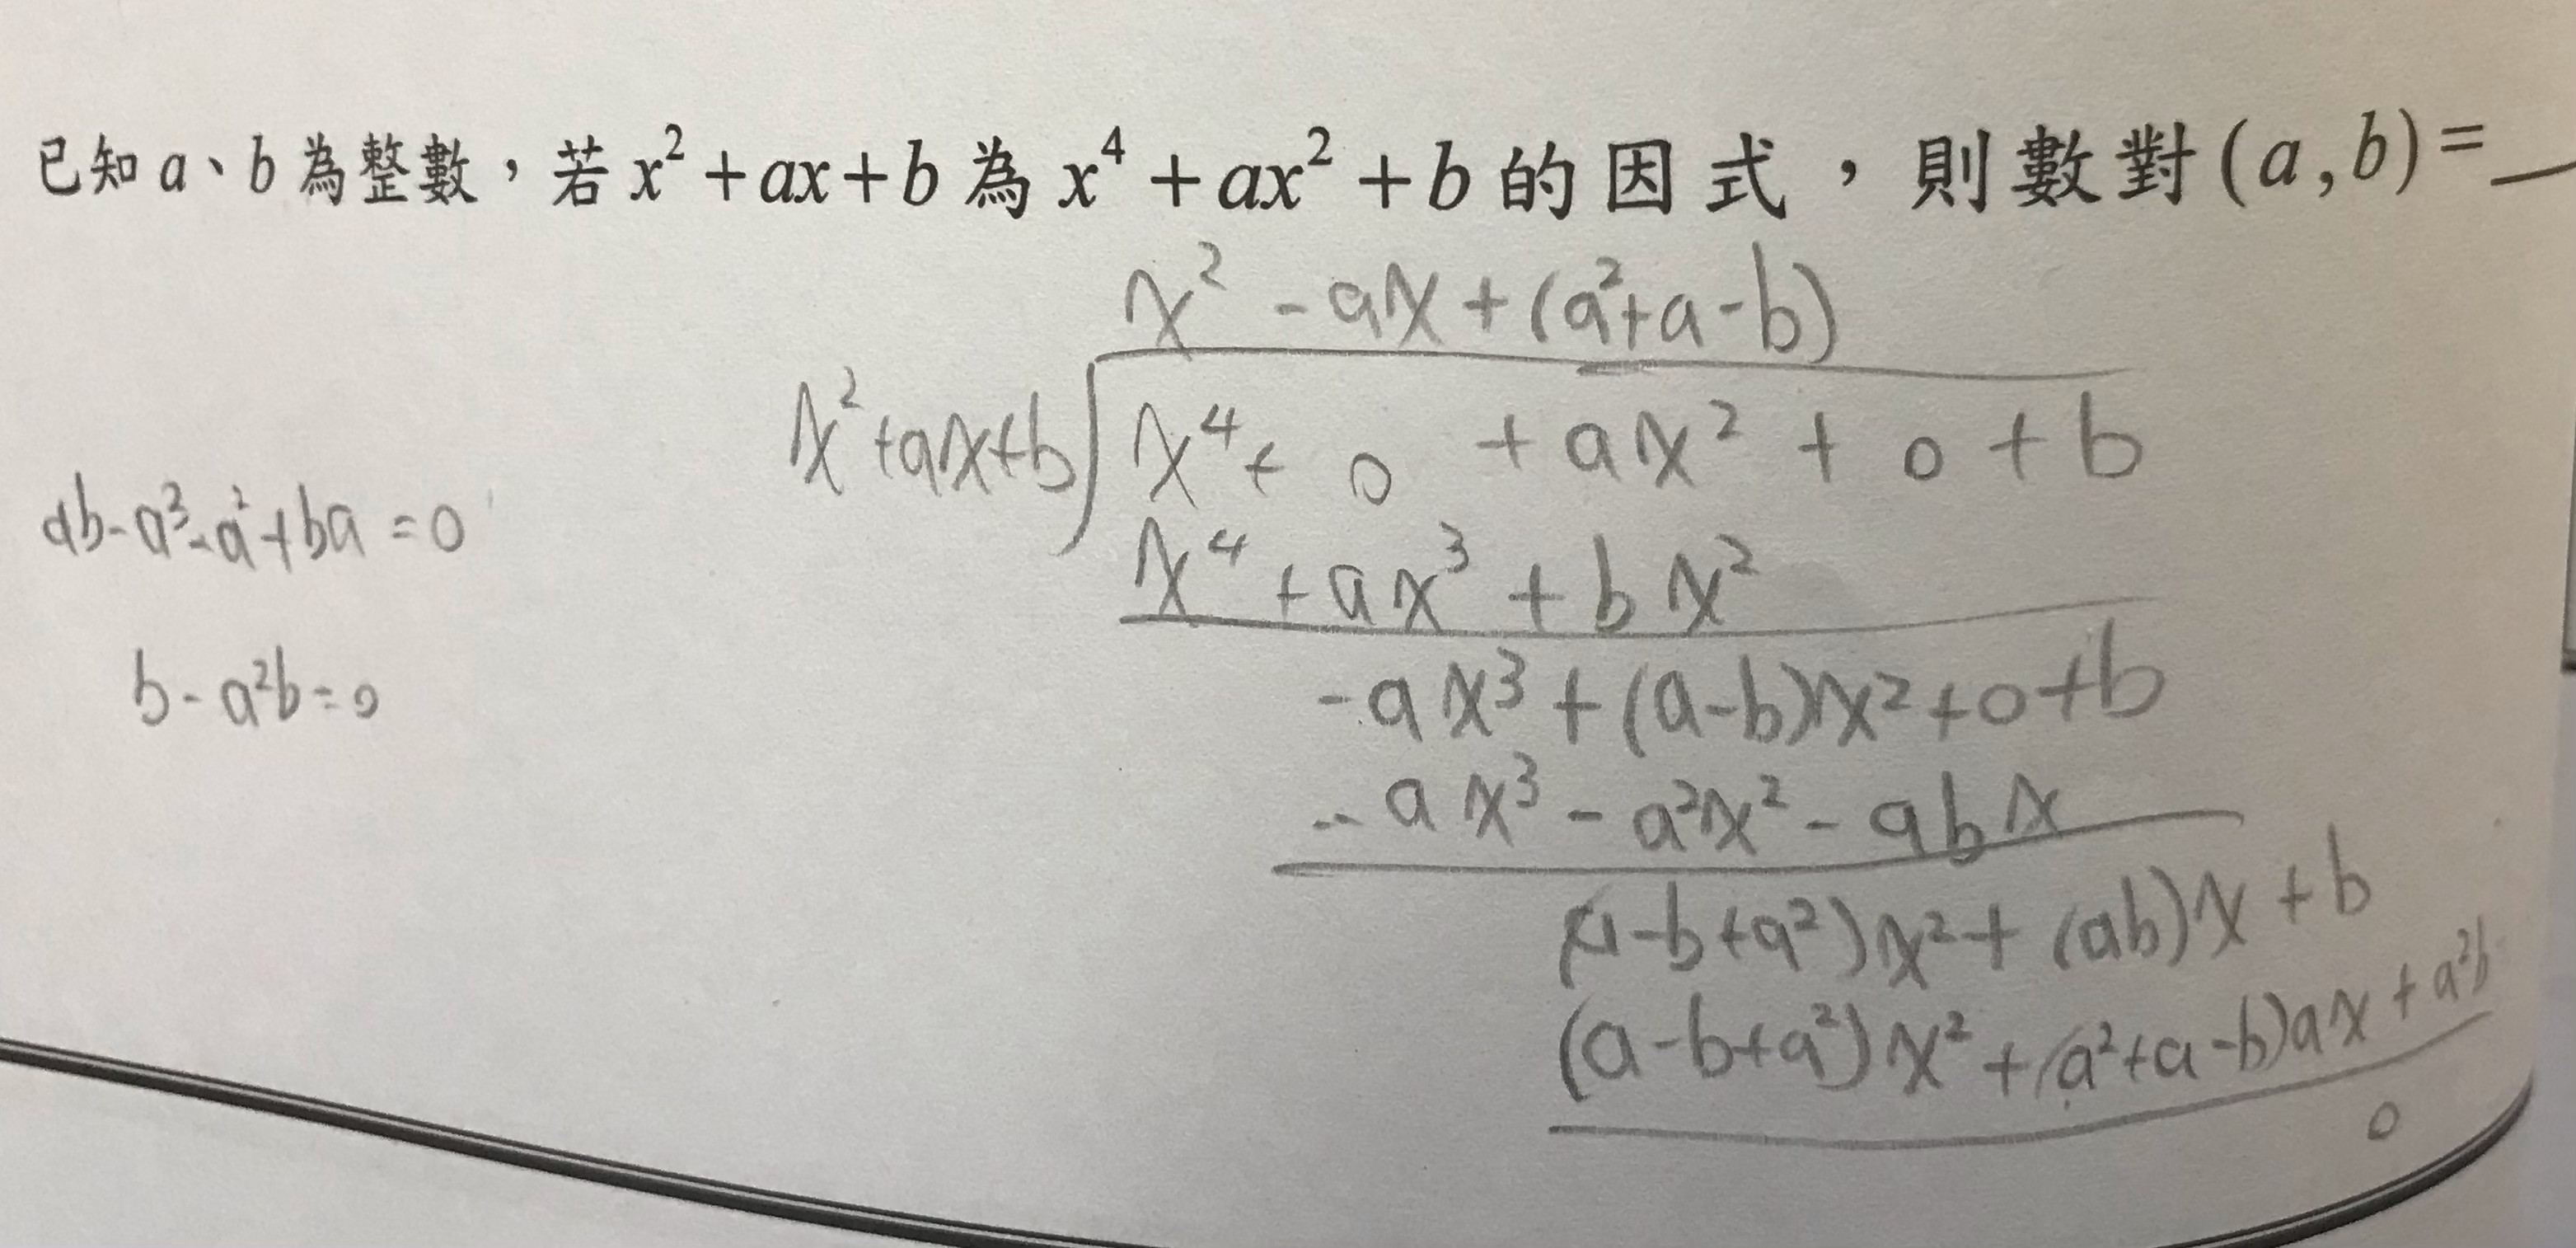 已知 a、b 為整數，若 x² + ax + b 為 x⁴ + ax² + b 的因式，則數對 (a, b) = __
x² - ax + (a²+a-b)
x²+ax+b x⁴ + 0 + ax² + 0 + b
x⁴ + ax³ + bx²
-ax³ + (a-b)x² + 0 + b
-ax³ - a²x² - abx
(a-b+a²)x² + (ab)x + b
(a-b+a²)x² + (a²+a-b)ax + a²b
0
ab - a³ - a² + ba = 0
b - a²b = 0